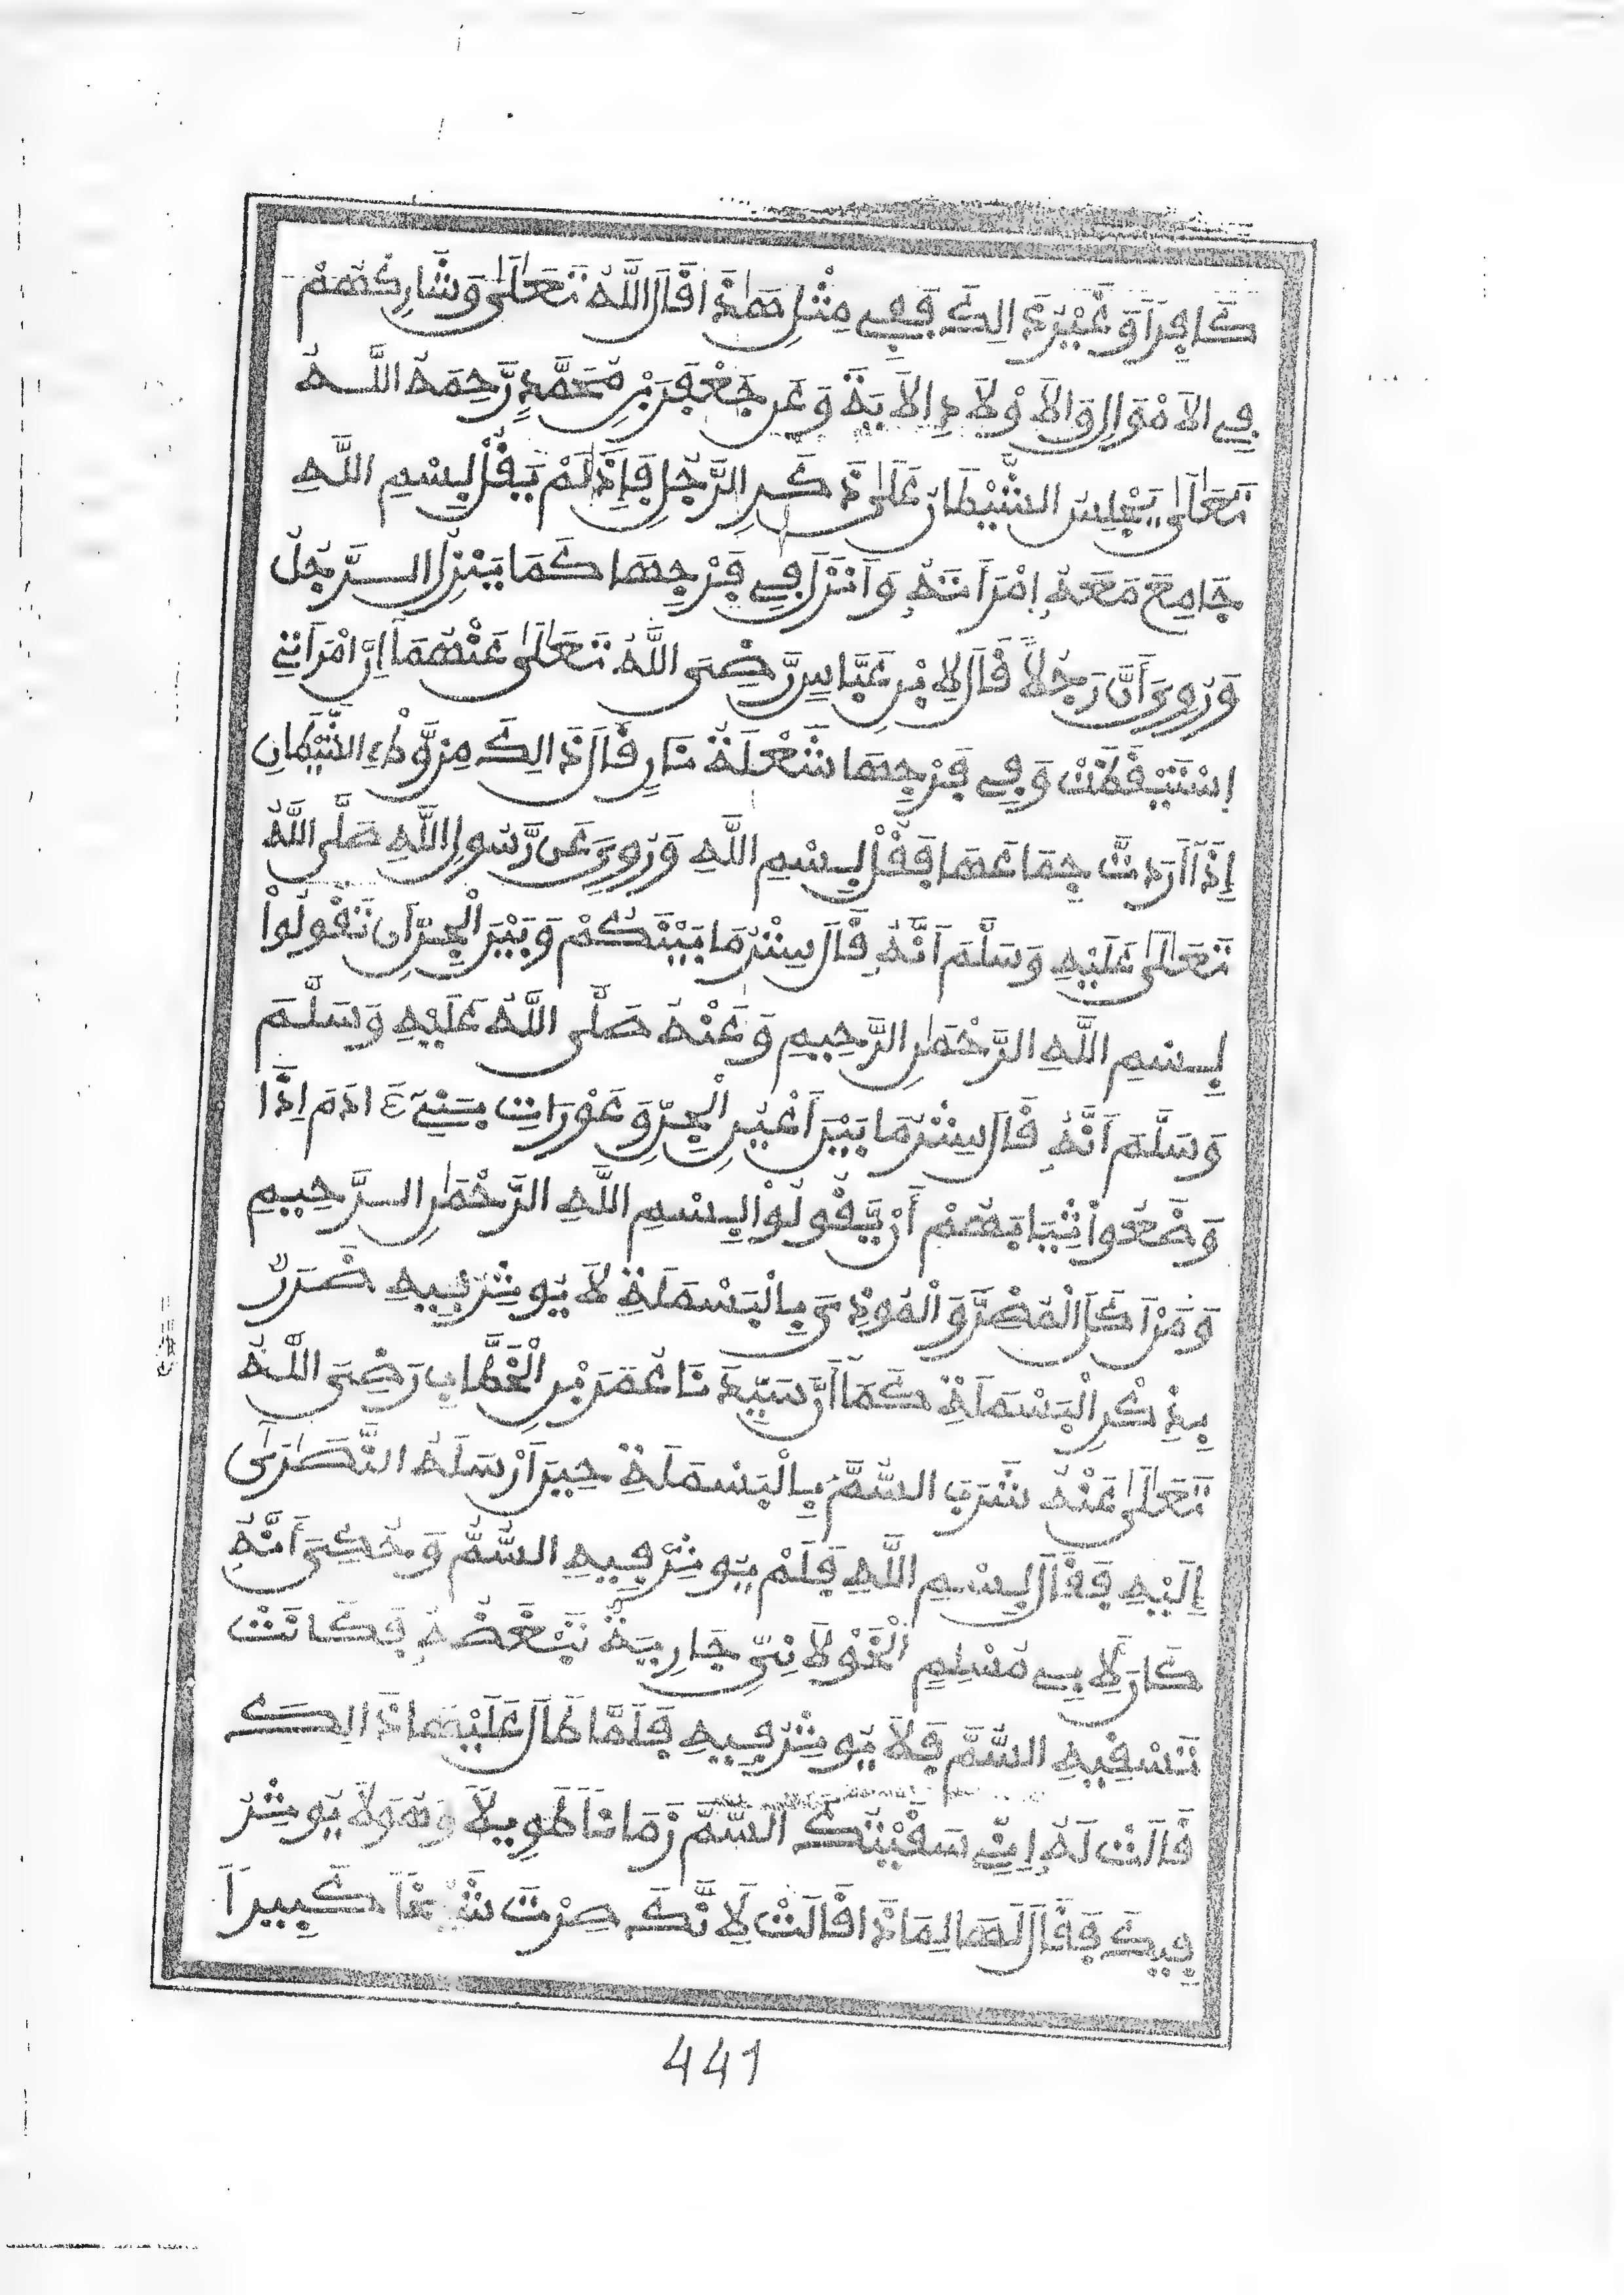 كَافِرًا وَّغَيْرَ ذَالِكَ فَفِي مِثْلِ هَٰذَا قَالَ اللَّهُ تَعَالَىٰ وَشَارِكْهُمْ
فِي الَامْوَالِ وَالَاوْلَادِ الَايَةَ وَعَن جَعْفَرَ بْنِ مُحَمَّدٍ رَّحِمَهُ اللَّهُ
تَعَالَىٰ يَجْلِسُ الشَّيْطَانُ عَلَىٰ ذَكَرِ الرَّجُلِ فَإِذَا لَمْ يَقُلْ بِسْمِ اللَّهِ
جَامِعَ مَعَهُ إِمْرَأَتَهُ وَأَنْزَلَ فِي فَرْجِهَا كَمَا يَنْزِلُ الرَّجُلُ
وَرُوِيَ أَنَّ رَجُلًا قَالَ لِابْنِ عَبَّاسٍ رَّضِيَ اللَّهُ تَعَالَىٰ عَنْهُمَا إِنَّ امْرَأَتِي
إِسْتَيْقَظَتْ وَفِي فَرْجِهَا شُعْلَةُ نَارٍ قَالَ ذَالِكَ مِن وَّطْءِ الشَّيْطَانِ
إِذَا أَرَدتَّ جِمَاعَهَا فَقُلْ بِسْمِ اللَّهِ وَرُوِيَ عَن رَّسُولِ اللَّهِ صَلَّى اللَّهُ
تَعَالَىٰ عَلَيْهِ وَسَلَّمَ أَنَّهُ قَالَ سِتْرُ مَا بَيْنَكُمْ وَبَيْنَ الْجِنِّ أَن تَقُولُواْ
بِسْمِ اللَّهِ الرَّحْمَٰنِ الرَّحِيمِ وَعَنْهُ صَلَّى اللَّهُ عَلَيْهِ وَسَلَّمَ
وَسَلَّمَ أَنَّهُ قَالَ سِتْرُ مَا بَيْنَ أَعْيُنِ الْجِنِّ وَعَوْرَاتِ بَنِي ءَادَمَ إِذَا
وَضَعُواْ ثِيَابَهُمْ أَنْ يَّقُولُواْ بِسْمِ اللَّهِ الرَّحْمَٰنِ الرَّحِيمِ
وَمَنْ أَكَلَ الْمُضِرَّ وَالْمُوذِيَ بِالْبَسْمَلَةِ لَا يُوثِرُ فِيهِ ضَرَرٌ
بِذِكْرِ الْبَسْمَلَةِ كَمَا أَنَّ سَيِّدَنَا عُمَرَ بْنَ الْخَطَّابِ رَضِيَ اللَّهُ
تَعَالَىٰ عَنْهُ شَرِبَ السُّمَّ بِالْبَسْمَلَةِ حِينَ أَرْسَلَهُ النَّصَٰرَىٰ
إِلَيْهِ فَقَالَ بِسْمِ اللَّهِ فَلَمْ يُوثِرْ فِيهِ السُّمُّ وَحُكِيَ أَنَّهُ
كَانَ لِأَبِي مُسْلِمٍ الْخَوْلَانِيِّ جَارِيَةٌ تُبْغِضُهُ فَكَانَتْ
تَسْقِيهِ السُّمَّ فَلَا يُوثِرُ فِيهِ فَلَمَّا طَالَ عَلَيْهَا ذَالِكَ
قَالَتْ لَهُ إِنِّي سَقَيْتُكَ السُّمَّ زَمَانًا طَوِيلًا وَهُوَ لَا يُوثِرُ
فِيكَ فَقَالَ لَهَا لِمَاذَا قَالَتْ لِأَنَّكَ صِرْتَ شَيْخًا كَبِيرًا
441